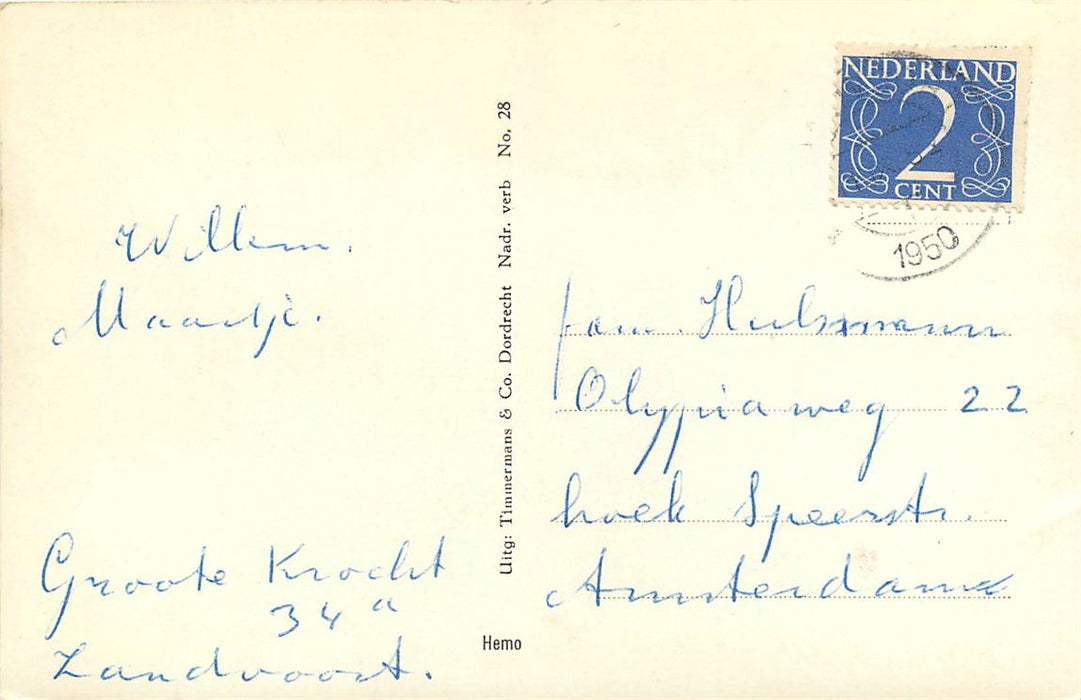 Willem.
Maartje.
Groote Krocht
34 a
Zandvoort.
Uitg: Timmermans & Co. Dordrecht Nadr. verb No. 28
Hemo
NEDERLAND
2
CENT
1950
fam. Hulsmann
Olympiaweg 22
hoek Speerstr.
Amsterdam